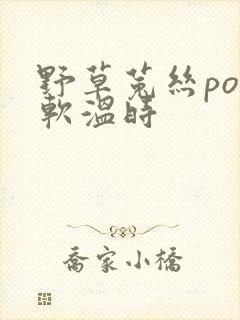 野草菟絲po
軟溫時
喬家小橋